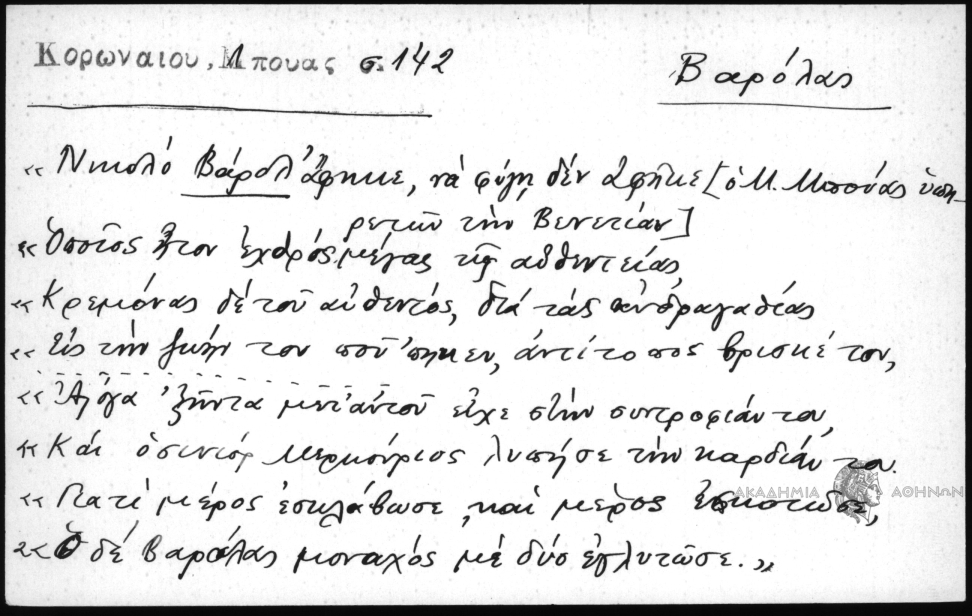 Κορωναιου, Μπουας σ. 142
Βαρόλας
« Νικολό Βάρολ ἄφηκε, νά φύγῃ δέν ἀφῆκε [ὁ Μ. Μπούας ὑπη-
ρετῶν τήν Βενετίαν]
« Ὁποῖος ἦτον ἐχθρός μέγας τῆς αὐθεντείας,
« Κρεμόνας δέ τοῦ αὐθεντός, διά τάς ἀνδραγαθίας
« Εἰς τήν ζωήν του ποῦ ἀντίτοπος βρισκέ τον,
« Ἄλογα ἑξῆντα μετ' αὐτοῦ εἶχε στήν συντροφιάν του,
« Καί ὁ σινιόρ Μερκούριος λυπῆσε τήν καρδιάν του.
« Γιατί μέρος ἐσκλάβωσε, καί μέρος ἐσκοτῶσε,
« Ὁ δέ Βαρόλας μοναχός μέ δύο ἐγλυτῶσε. »
ΑΚΑΔΗΜΙΑ ΑΘΗΝΩΝ